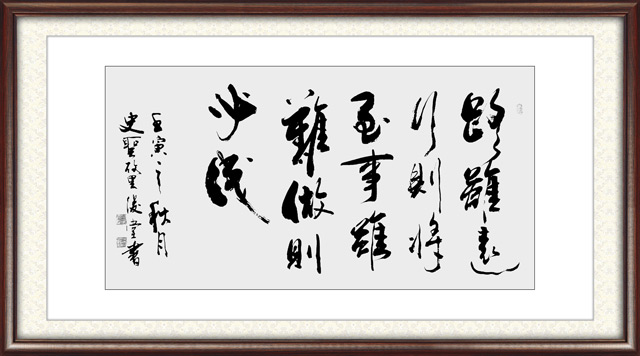 路雖遠
行則將
至事雖
難做則
必成
壬寅之秋月
史聖故里堂書